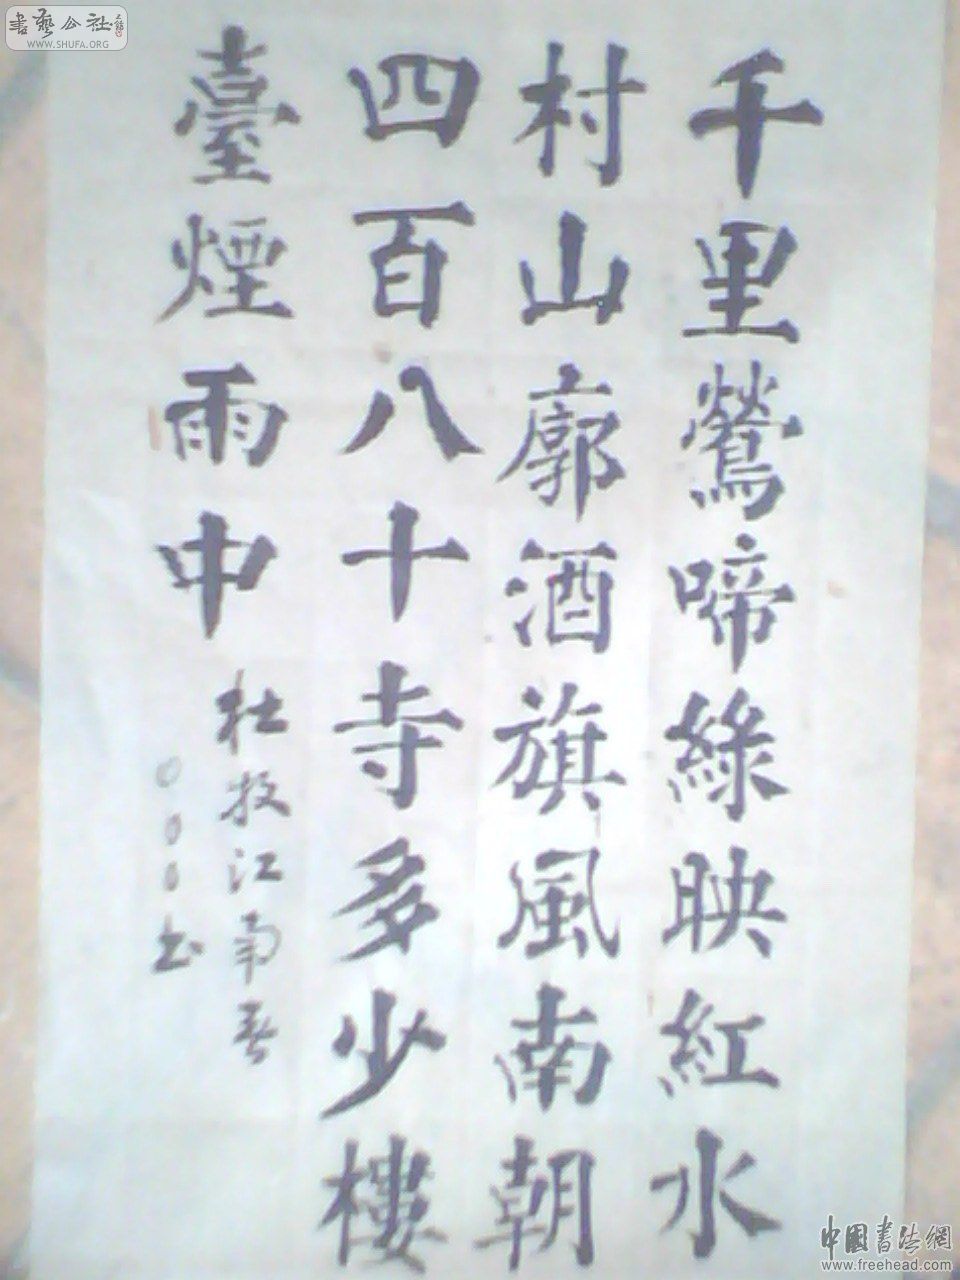 千里鶯啼綠映紅水
村山廓酒旗風南朝
四百八十寺多少樓
臺煙雨中
杜牧江南春
書藝公社
WWW.SHUFA.ORG
中國書法網
www.freehead.com